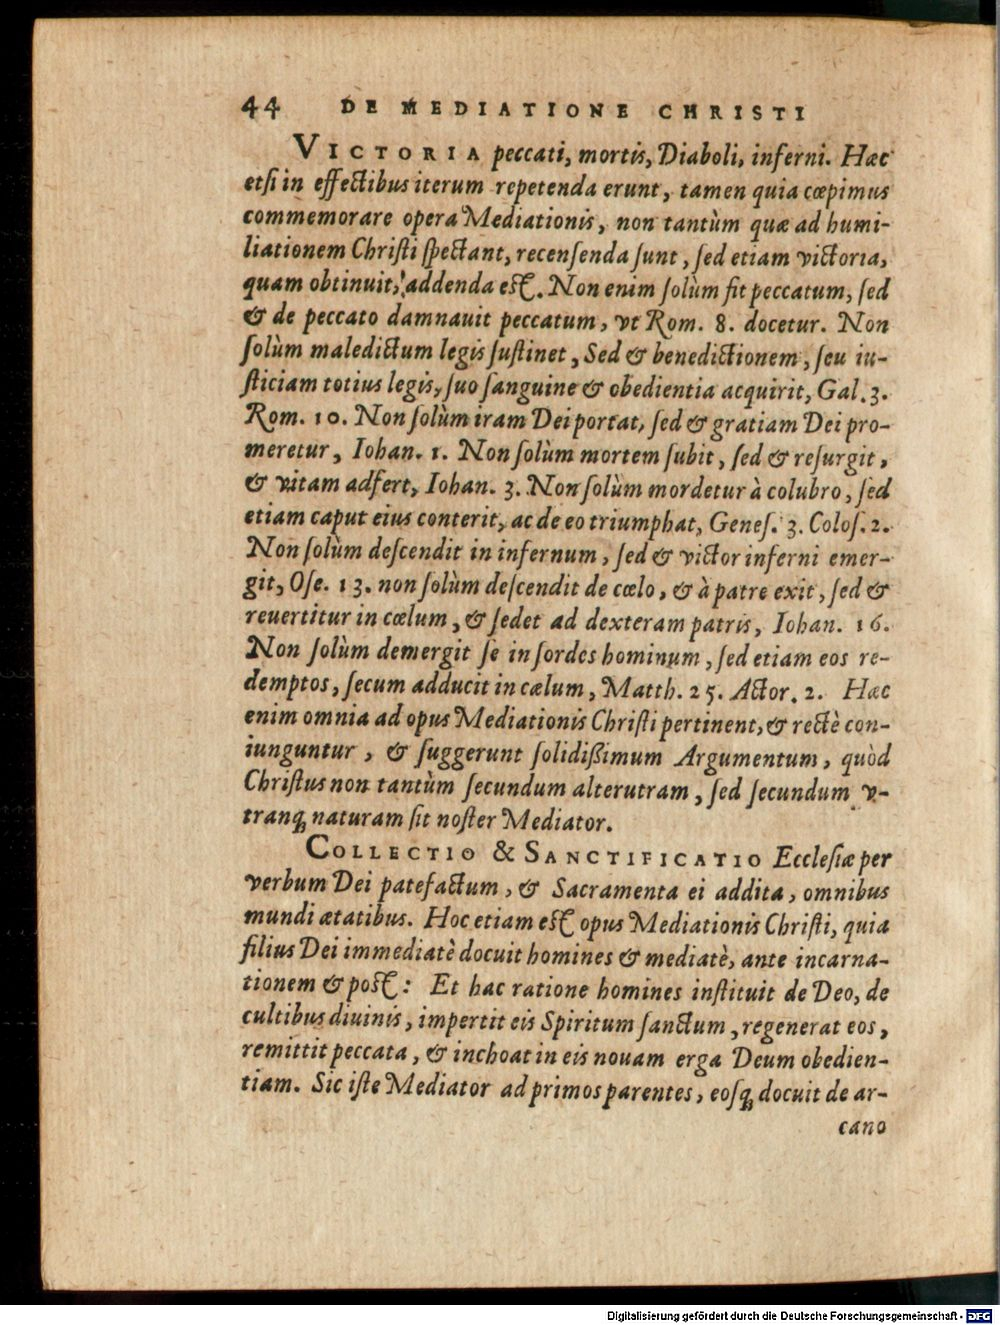 44 DE MEDIATIONE CHRISTI
VICTORIA peccati, mortis, Diaboli, inferni. Hæc
etſi in effectibus iterum repetenda erunt, tamen quia cœpimus
commemorare opera Mediationis, non tantùm quæ ad humi-
liationem Chriſti ſpectant, recenſenda ſunt, ſed etiam victoria,
quam obtinuit, addenda eſt. Non enim ſolùm fit peccatum, ſed
& de peccato damnauit peccatum, vt Rom. 8. docetur. Non
ſolùm maledictum legis ſuſtinet, Sed & benedictionem, ſeu iu-
ſticiam totius legis, ſuo ſanguine & obedientia acquirit, Gal. 3.
Rom. 10. Non ſolùm iram Dei portat, ſed & gratiam Dei pro-
meretur, Iohan. 1. Non ſolùm mortem ſubit, ſed & reſurgit,
& vitam adfert, Iohan. 3. Non ſolùm mordetur à colubro, ſed
etiam caput eius conterit, ac de eo triumphat, Geneſ. 3. Coloſ. 2.
Non ſolùm deſcendit in infernum, ſed & victor inferni emer-
git, Oſe. 13. non ſolùm deſcendit de cœlo, & à patre exit, ſed &
reuertitur in cœlum, & ſedet ad dexteram patris, Iohan. 16.
Non ſolùm demergit ſe in ſordes hominum, ſed etiam eos re-
demptos, ſecum adducit in cælum, Matth. 25. Actor. 2. Hæc
enim omnia ad opus Mediationis Chriſti pertinent, & rectè con-
iunguntur, & ſuggerunt ſolidißimum Argumentum, quòd
Chriſtus non tantùm ſecundum alterutram, ſed ſecundum v-
tranq; naturam ſit noſter Mediator.
COLLECTIO & SANCTIFICATIO Eccleſiæ per
verbum Dei patefactum, & Sacramenta ei addita, omnibus
mundi ætatibus. Hoc etiam eſt opus Mediationis Chriſti, quia
filius Dei immediatè docuit homines & mediatè, ante incarna-
tionem & poſt: Et hac ratione homines inſtituit de Deo, de
cultibus diuinis, impertit eis Spiritum ſanctum, regenerat eos,
remittit peccata, & inchoat in eis nouam erga Deum obedien-
tiam. Sic iſte Mediator ad primos parentes, eoſq; docuit de ar-
cano
Digitalisierung gefördert durch die Deutsche Forschungsgemeinschaft - DFG